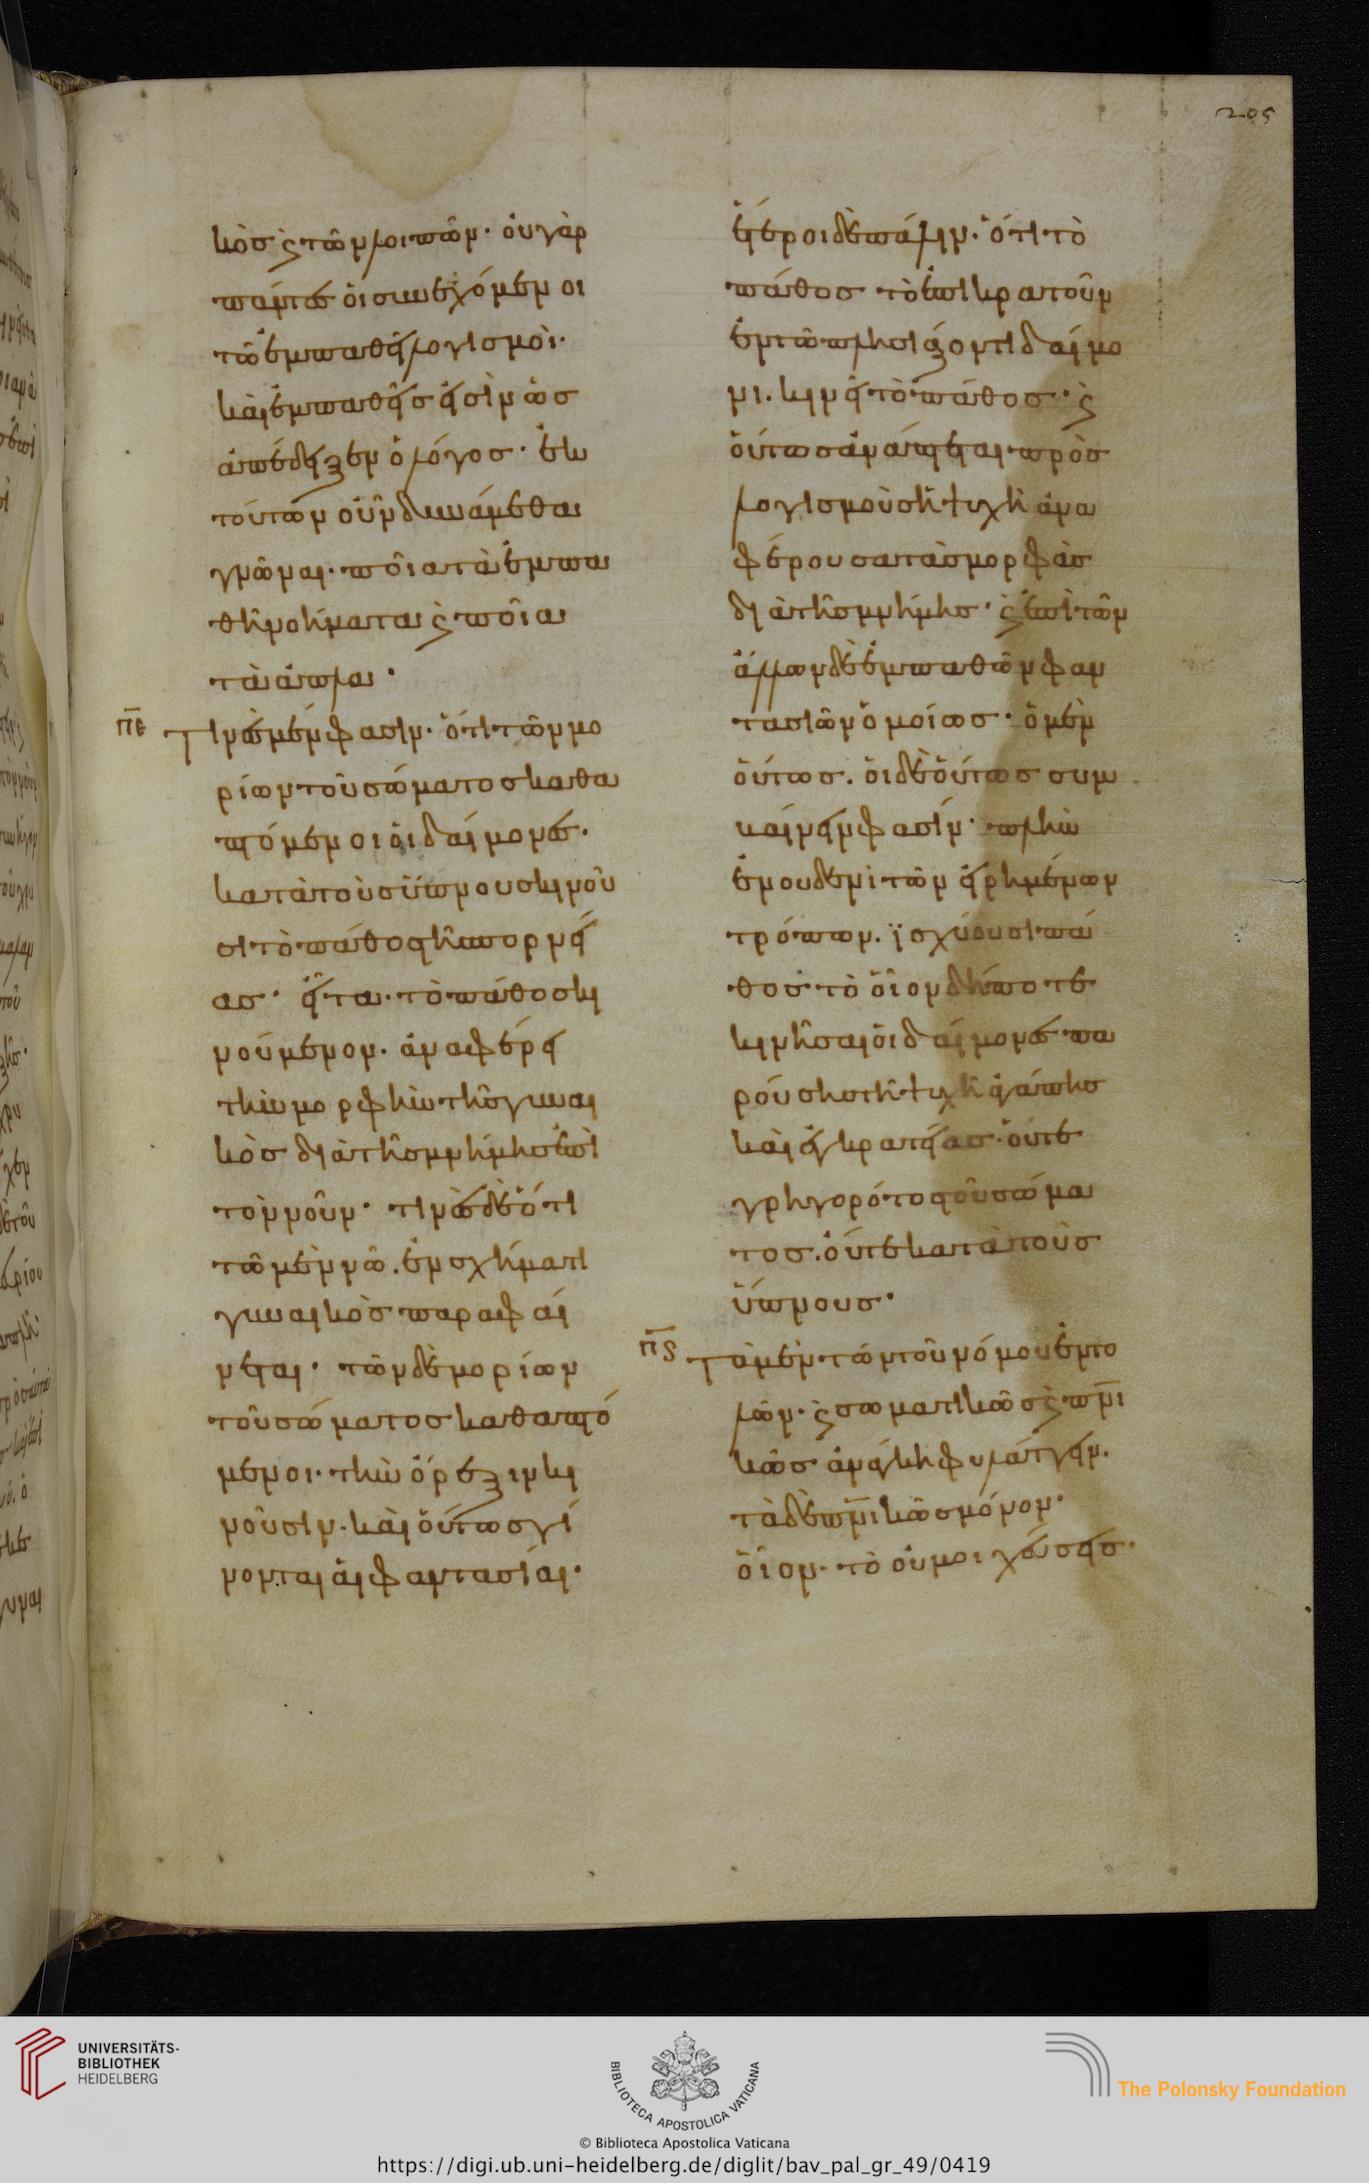 205
κὸς ϗ τῶν λοιπῶν· οὐ γὰρ
πάντες οἱ συνεχόμενοι
τῶ ἐμπαθεῖ λογισμοὶ·
καὶ ἐμπαθεῖς εἰσὶν ὡς
ἀπέδειξεν ὁ λόγος· ἐκ
τούτων οὖν δυνάμεθα
γνῶναι· ποῖα τὰ ἐμπα
θῆ νοήματα ϗ ποῖα
τὰ ἁπλα·
πε Τινὲς μέν φασιν· ὅτι τῶν μο
ρίων τοῦ σώματος καθα
πτόμενοι οἱ δαίμονες·
κατὰ τοὺς ὕπνους κινοῦ
σι τὸ πάθος τῆς πορνεί
ας· εἶτα· τὸ πάθος κι
νούμενον· ἀναφέρει
τὴν μορφὴν τῆς γυναι
κὸς διὰ τῆς μνήμης ἐπὶ
τὸν νοῦν· τινὲς δὲ ὅτι
τῶ μὲν νῶ. ἐν σχήματι
γυναικὸς παραφαί
νεται· τῶν δὲ μορίων
τοῦ σώματος καθαπτό
μενοι· τὴν ὄρεξιν κι
νοῦσιν· καὶ οὕτως γί
νονται αἱ φαντασίαι·
ἕτεροι δὲ πάλιν· ὅτι τὸ
πάθος τὸ ἐπικρατοῦν
ἐν τῶ πλησιάζοντι δαίμο
νι. κινεῖ τὸ πάθος· ϗ
οὕτως ἀνάπτεται πρὸς
λογισμοὺς ἡ ψυχὴ ἀνα
φέρουσα τὰς μορφὰς
διὰ τῆς μνήμης· ϗ ἐπὶ τῶν
ἄλλων δὲ ἐμπαθῶν φαν
τασιῶν ὁμοίως· ὁ μὲν
οὕτως. οἱ δὲ οὕτως συμ
βαίνειν φασίν· πλὴν
ἐν οὐδενὶ τῶν εἰρημένων
τρόπων. ϊσχύουσι πά
θος τὸ οἷον δήποτε
κινῆσαι οἱ δαίμονες πα
ρούσης τῆ ψυχῆ ἀγάπης
καὶ ἐγκρατείας· οὔτε
γρηγορότος τοῦ σώμα
τος. οὔτε κατὰ τοὺς
ὕπνους·
πϛ Τὰ μὲν τῶν τοῦ νόμου ἐντο
λῶν· ϗ σωματικῶς ϗ πνι
κῶς ἀνάγκη φυλάττειν.
τὰ δὲ πνικῶς μόνον·
οἷον· τὸ οὐ μοιχεύσεις·
UNIVERSITÄTS-
BIBLIOTHEK
HEIDELBERG
BIBLIOTECA APOSTOLICA VATICANA
The Polonsky Foundation
© Biblioteca Apostolica Vaticana
https://digi.ub.uni-heidelberg.de/diglit/bav_pal_gr_49/0419